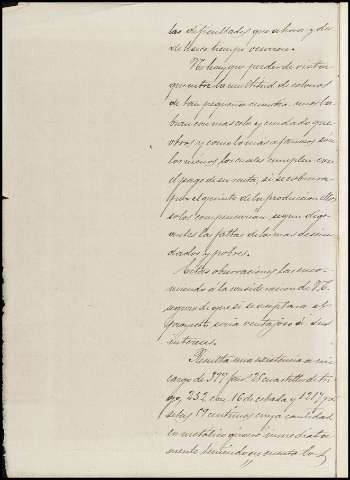 las dificultades que ahora y des
de hace tiempo ocurren.
N. hay que perder de vista
que entre la multitud de colonos
de tan pequeña cuantía unos la
bran con mas celo y cuidado que
otros y como lo mas afanosos son
los menos, los cuales cumplen con
el pago de su renta, si se cobrara
por el quinto de la produccion ellos
solos compensarian segun dige
antes la falta de la mas descui
dados y pobres.
Estas observaciones las enco-
miendo á la consideracion de V.E.
seguro de que si se aceptara el
proyecto seria ventajoso á sus
intereses.
Resulta una existencia a mi
cargo de 399 fans. 25 cuartillos de tri
go, 232 con 16 de cebada y 1217 pe
setas 59 centimos cuya cantidad
en metálico
mente teniendo en cuenta lo